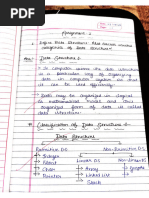 Assignment 1
Define Data Structure. Also Explain various
categories of Data Structure.
Ans:- Data Structure :-
In computer science the data structure
is a particular way of organizing
data in computer so that it can be
used efficiently.
Data may be organized in logical
or mathematical model and this
organized form of data is called
data structure.
* Classification of Data Structure :-
Data Structure
Primitive DS Non-Primitive DS
Integer Linear DS Non-Linear DS
Float
Char Array Graphs
Pointers Linked List
Stack